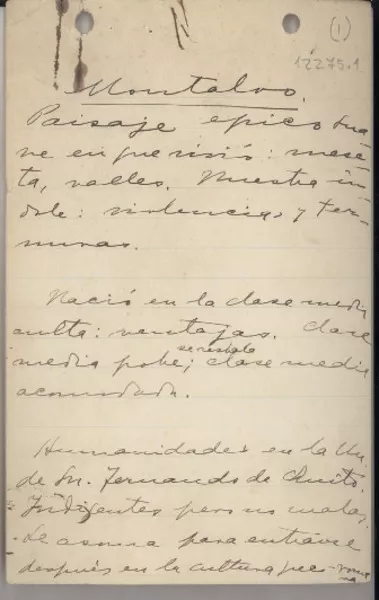 (1)
12275.1
Montalvo.
Paisaje epico sua-
ve en que vivió: mese-
ta, valles. Nuestra ín-
dole: violencias y ter-
nuras.
Nació en la clase media
culta: ventajas. Clase
se resbala
media pobre; clase media
acomodada.
Humanidades en la Un.
de Sn. Fernando de Quito.
Indigentes pero no malas.
Se asoma para entrarse
después en la cultura